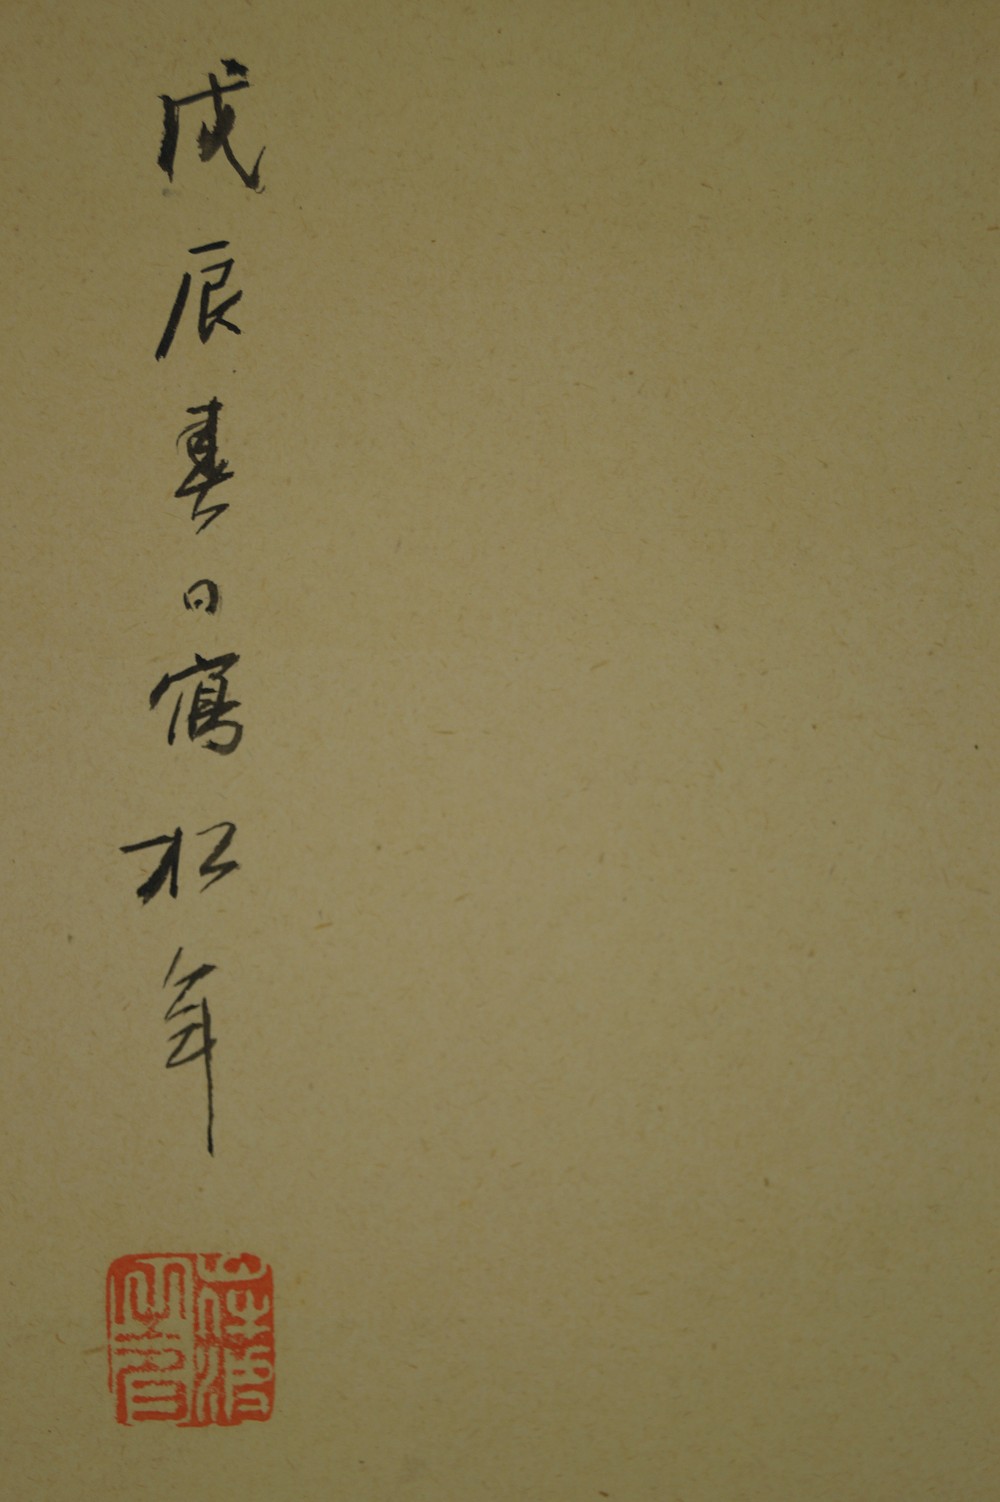 戊辰春日寫松年